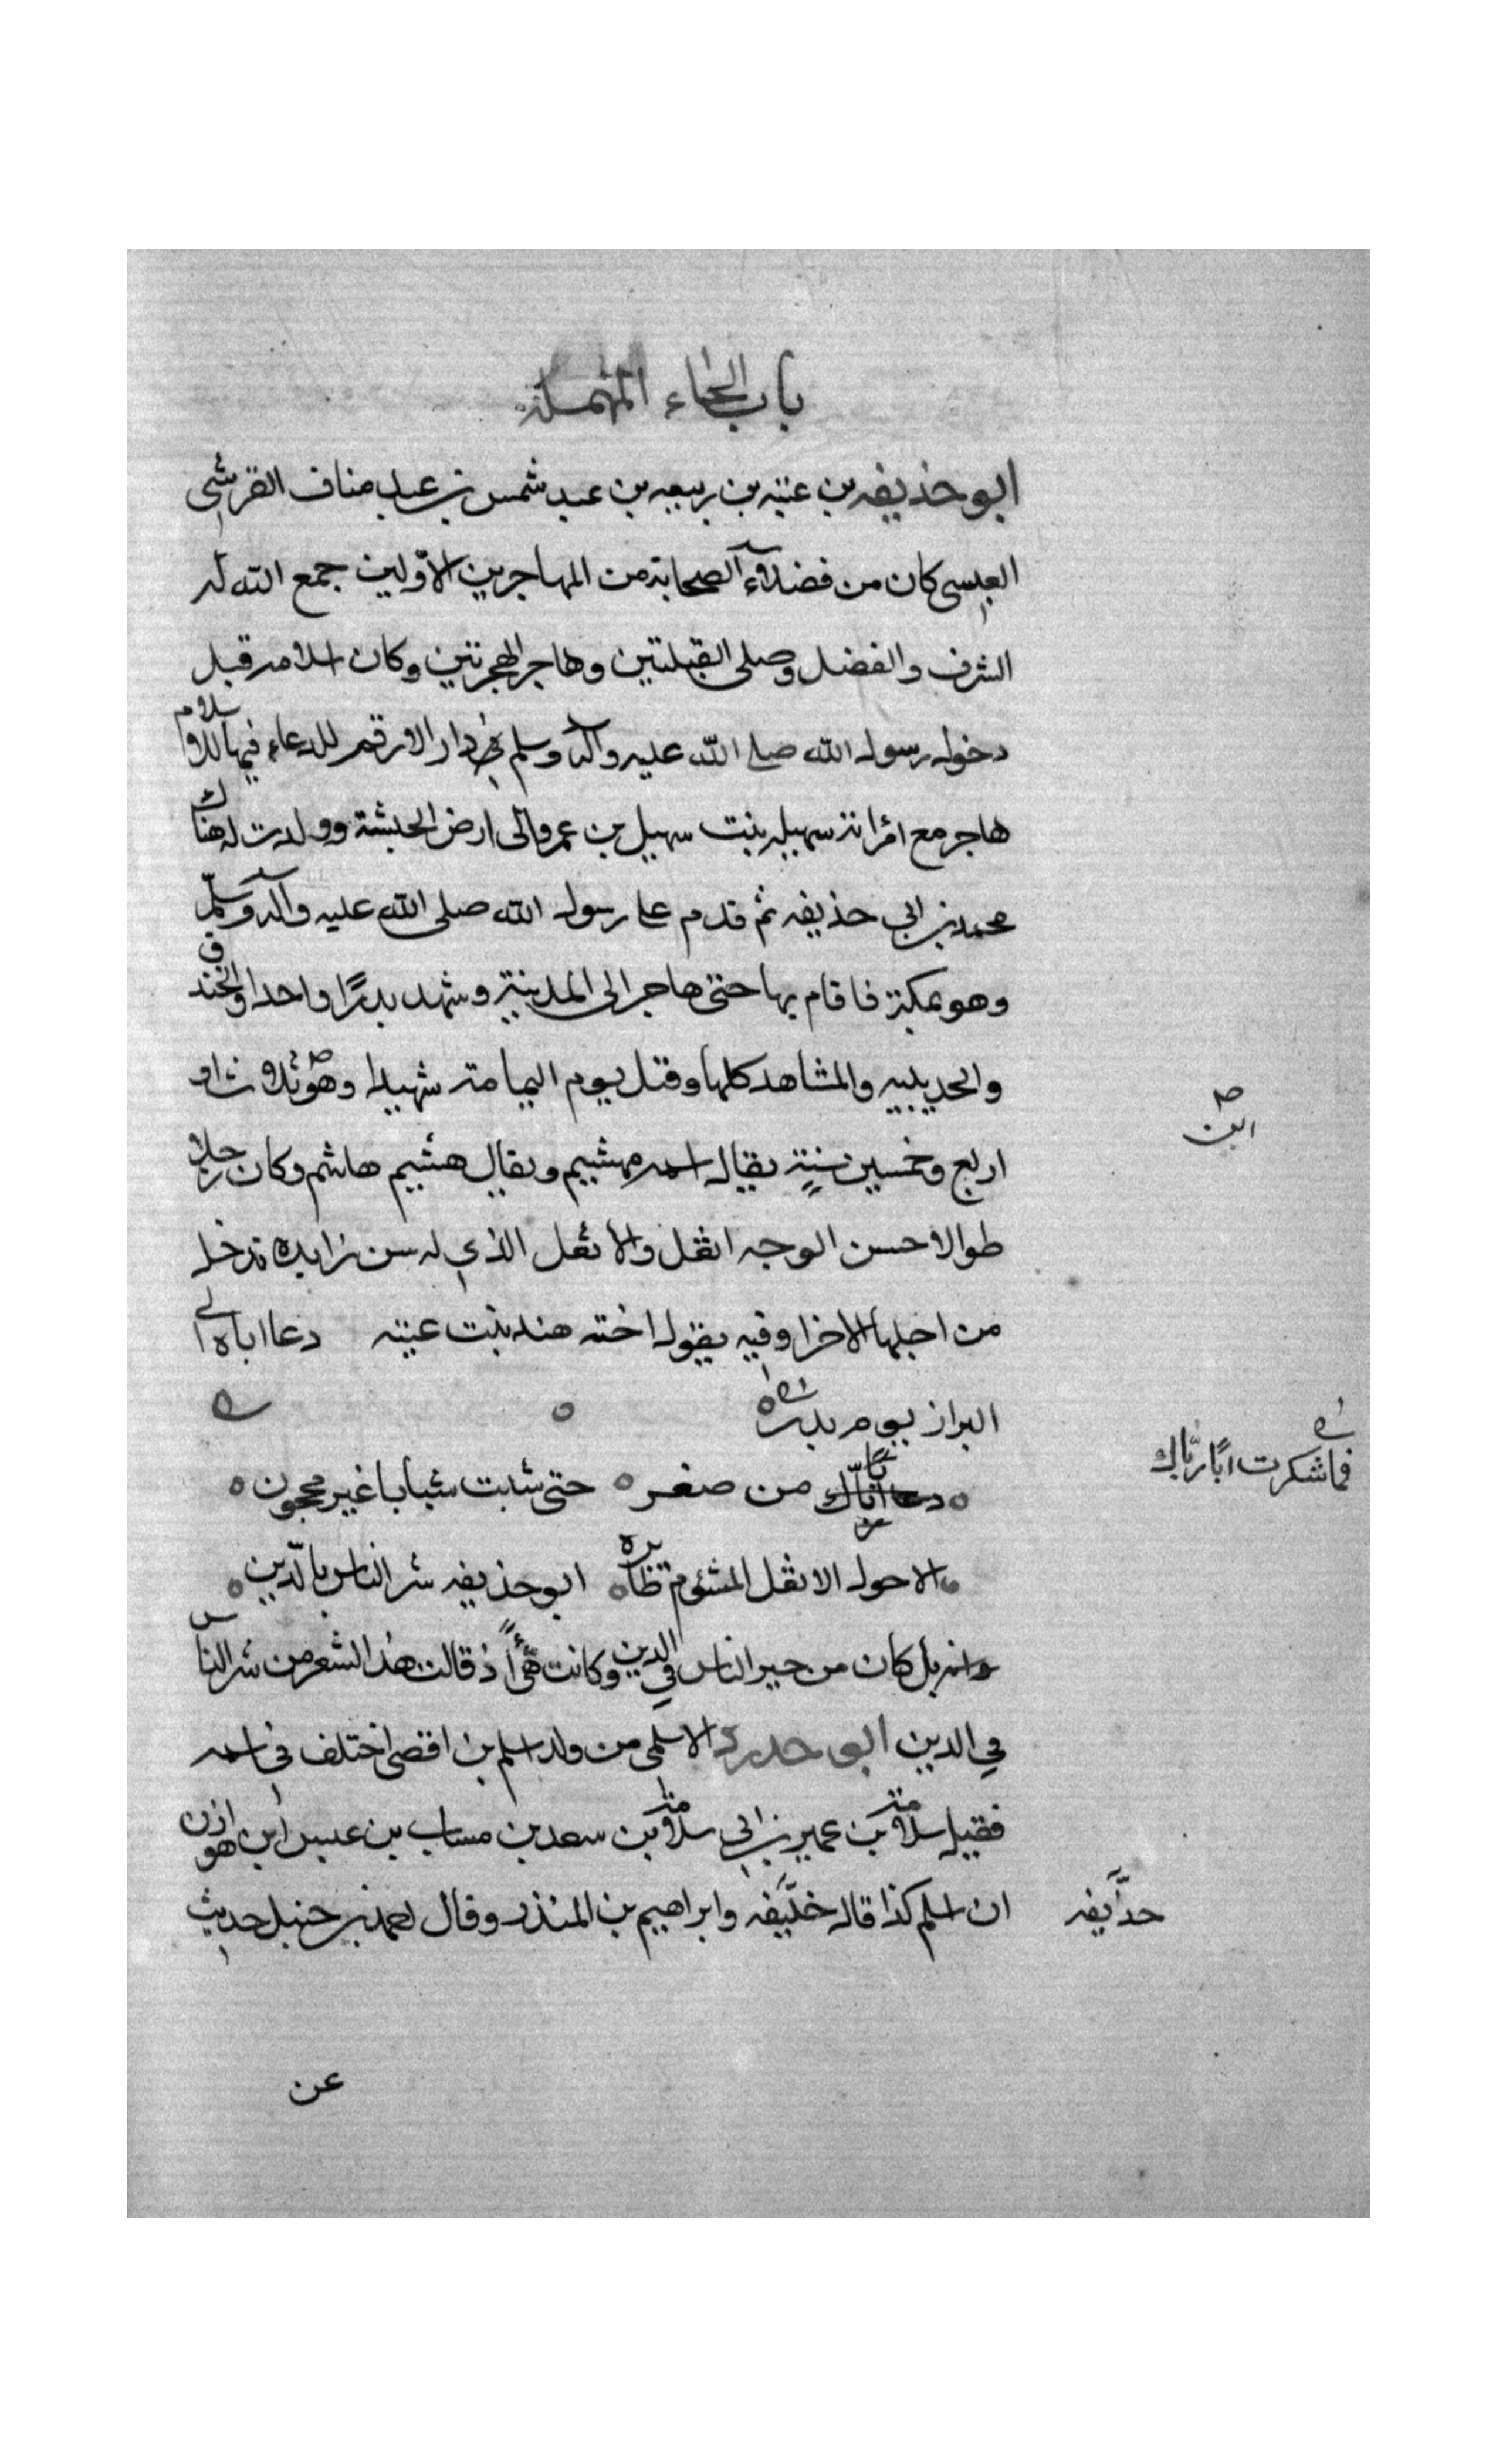 باب الحاء المهملة
ابو حذيفه بن عتبه بن ربيعه بن عبد شمس بن عبد مناف القرشي
العبسى كان من فضلآء الصحابة من المهاجرين الاوّلين جمع الله له
الشرف والفضل وصلى القبلتين وهاجر الهجرتين وكان اسلامه قبل
دخول رسول الله صلى الله عليه وآله وسلم في دار الارقم للدعاء فيها للاسلام
هاجر مع امرأته سهيله بنت سهيل بن عمرو الى ارض الحبشة وولدت له هناك
محمد بن ابي حذيفه ثم قدم على رسول الله صلى الله عليه وآله وسلّم
وهو بمكة فاقام بها حتى هاجر الى المدينة وشهد بدرًا واحدا والخندق
والحديبيه والمشاهد كلها وقتل يوم اليمامة شهيدا وهو ثلاث او
ابن
اربع وخمسين سنةٍ يقال اسمه مهشيم ويقال هشيم هاشم وكان رجلا
طوالا حسن الوجه اثعل والاثعل الذي له سن زايده تدخل
من اجلها الاخرا وفيه يقول اخته هند بنت عتبه دعا اباه الى
البراز يوم بدر
فما شكرت ابًا ربّاك
من صغر حتى شببت شبابا غير محجون
الاحول الاثعل المشئوم ابو حذيفه شر الناس بالدّين
وانه بل كان من خير الناس في الدين وكانت هي اذ قالت هذا الشعر من شر الناس
في الدين ابى حدرد الاسلمى من ولد اسلم بن افصى اختلف في اسمه
فقيل سلامة بن عمير بن ابي سلامة بن سعد بن مساب بن عبس ابن هوازن
ان اسلم كذا قال خليفه وابراهيم بن المنذر وقال احمد بن حنبل حديث
حذيفه
عن